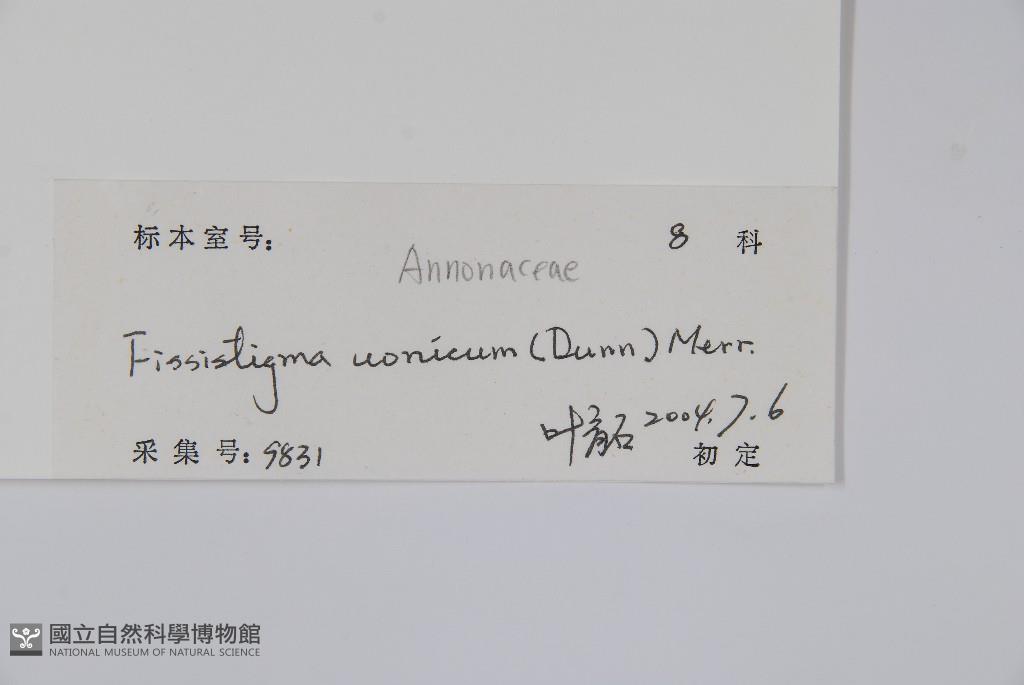 标本室号: 8 科
Annonaceae
Fissistigma uonicum (Dunn) Merr.
叶育石 2004.7.6
采集号: 9831 初定
國立自然科學博物館
NATIONAL MUSEUM OF NATURAL SCIENCE